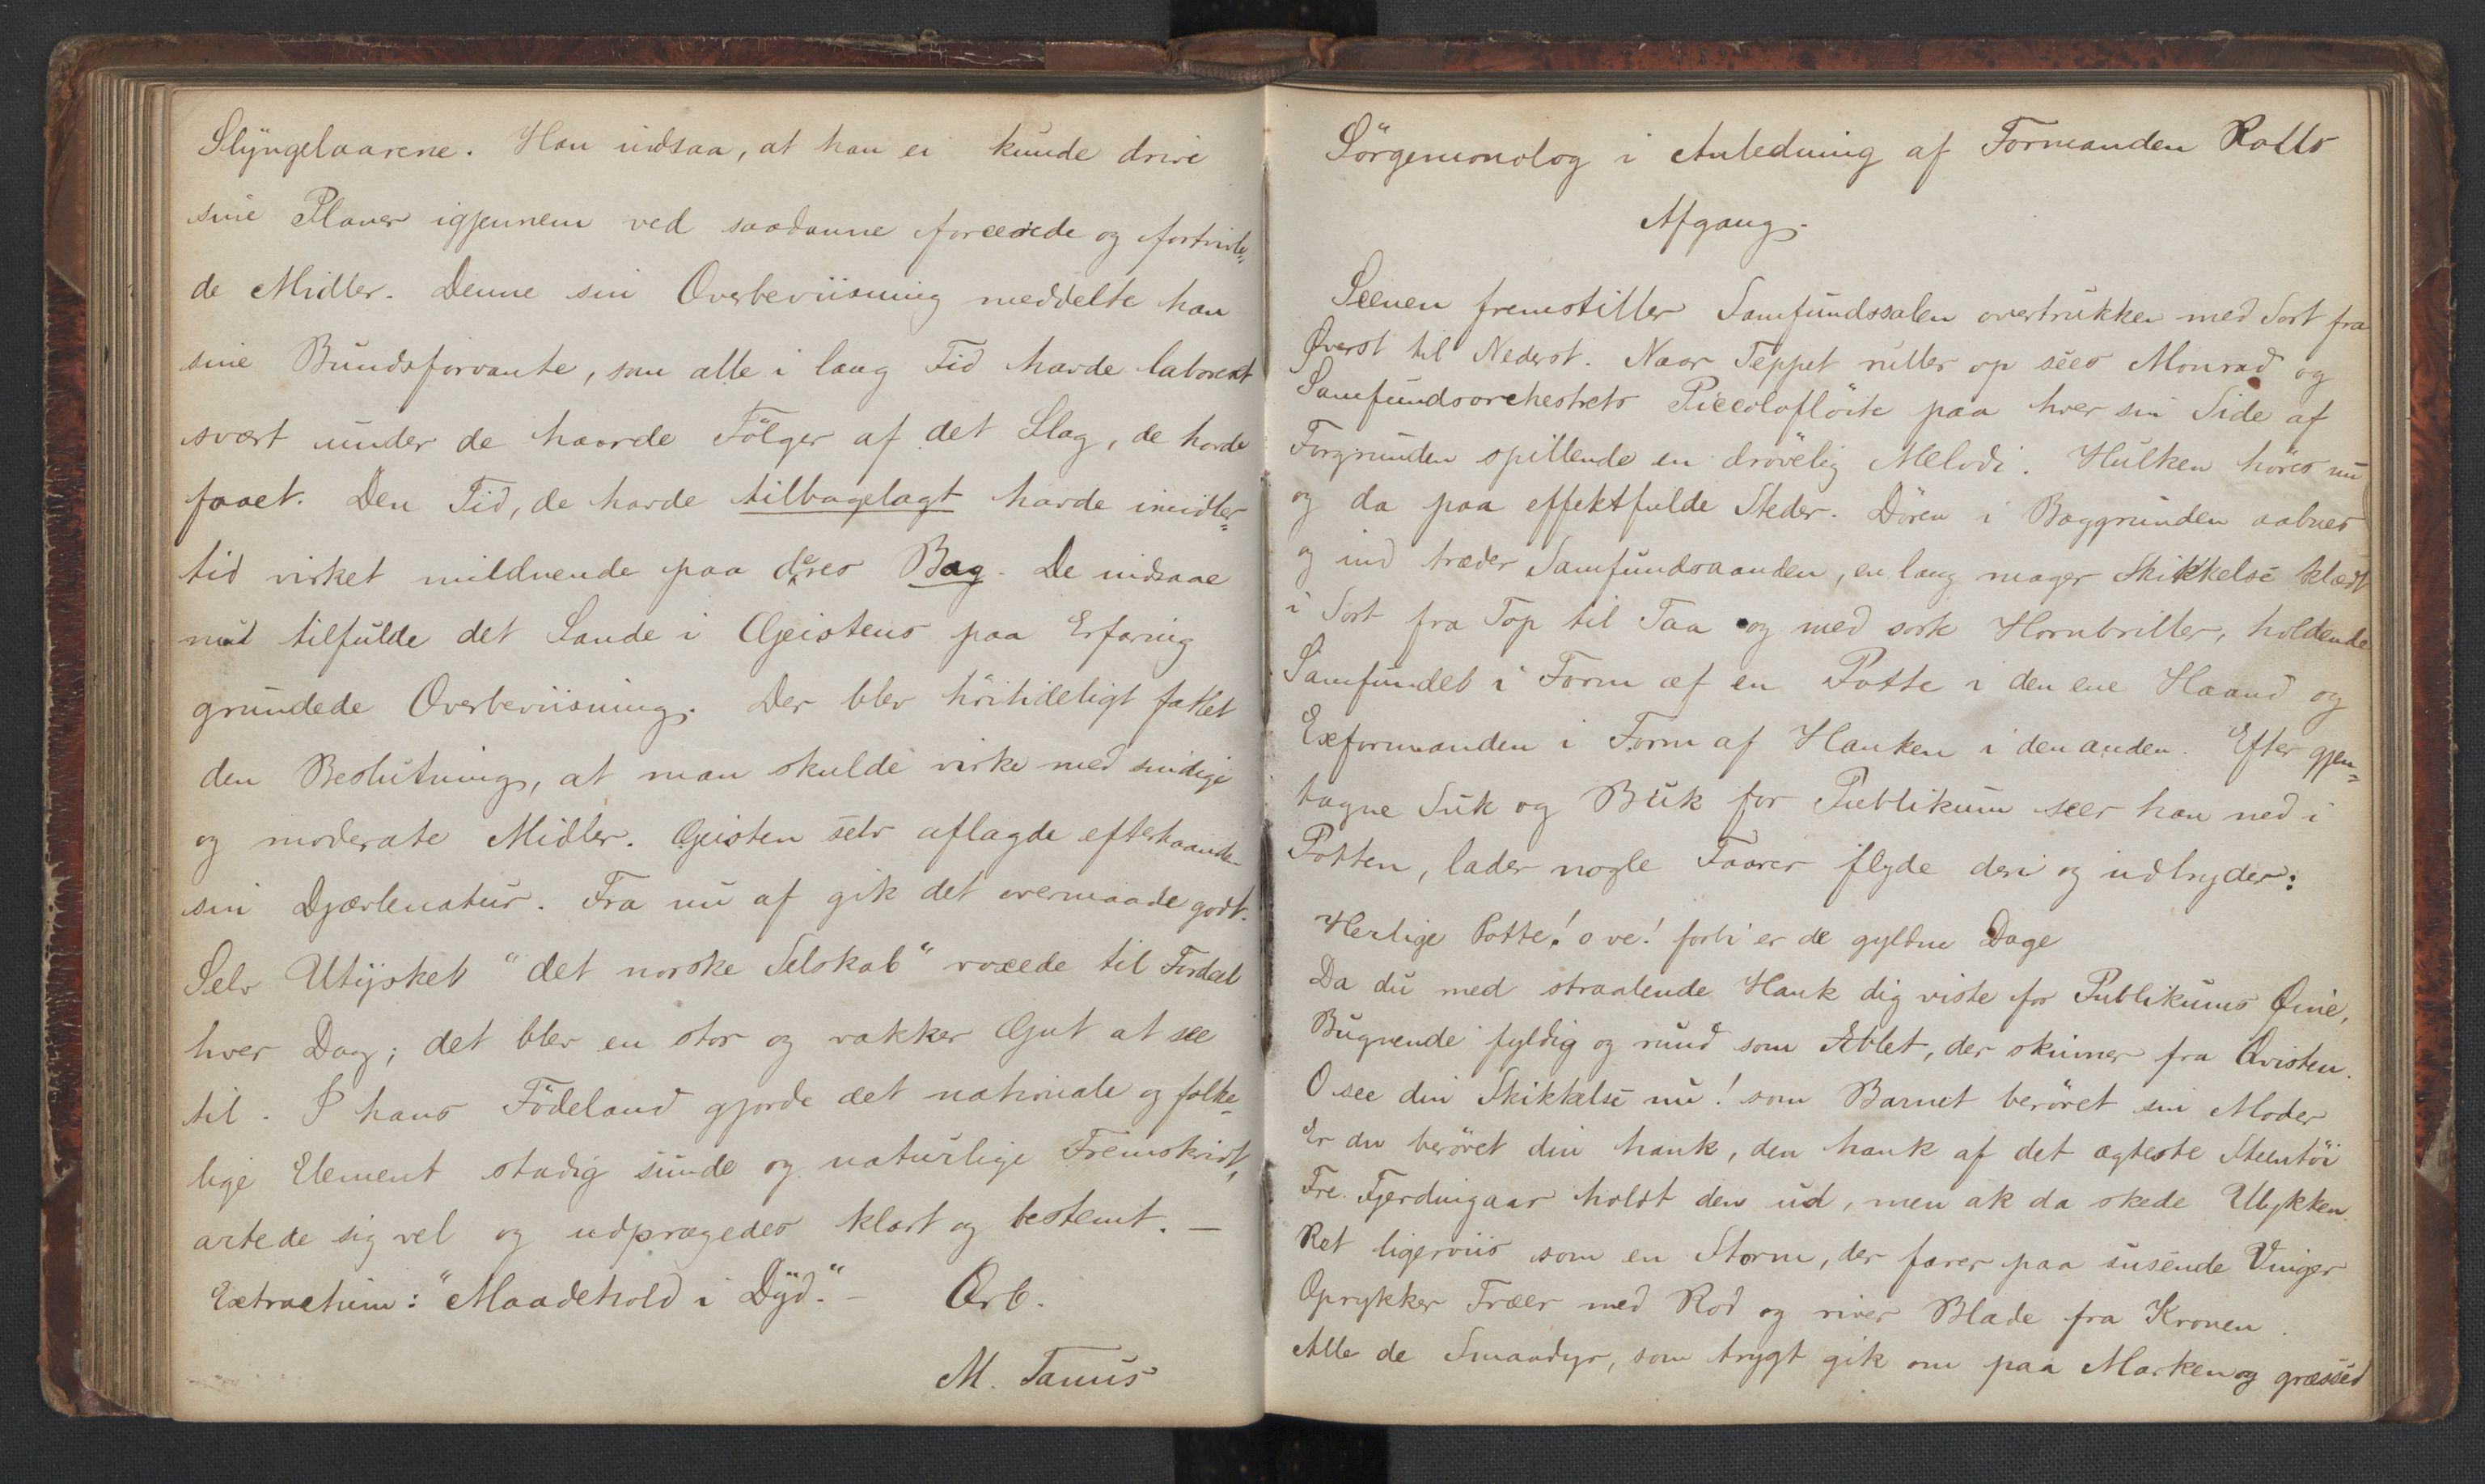 Slyngelaarene. Han indsaa, at han ei kunde drive
sine Planer igjennem ved saadanne forcerede og fortvivle-
de Midler. Denne sin Overbeviisning meddelte han
sine Bundsforvante, som alle i lang Tid havde laborert
svært under de haarde Fölger af det Slag, de havde
faaet. Den Tid, de havde tilbagelagt havde imidler-
tid virket mildnende paa deres Bag. De indsaae
nu tilfulde det Sande i Geistens paa Erfaring
grundede Overbeviisning. Der blev höitideligt fattet
den Beslutning, at man skulde virke med sindige
og moderate Midler. Geisten selv aflagde efterhaanden
sin Djævlenatur. Fra nu af gik det overmaade godt.
Selv Utysket "det norske Selskab" voxede til Fordeel
hver Dag; det blev en stor og vakker Gut at see
til. I hans Födeland gjorde det nationale og folke-
lige Element stadig sunde og naturlige Fremskridt,
artede sig vel og udprægedes klart og bestemt. —
Extractum: "Maadehold i Dyd." — Orb.
M. Tanus
Sörgemonolog i Anledning af Formanden Rolls
Afgang.
Scenen fremstiller Samfundssalen overtrukken med Sort fra
Øverst til Nederst. Naar Teppet ruller op sees Monrad og
Samfundsorchestrets Piccoloflöite paa hver sin Side af
Forgrunden spillende en drövelig Melodi. Hulken höres nu
og da paa effektfulde Steder. Dören i Baggrunden aabnes
og ind træder Samfundsaanden, en lang mager Skikkelse klædt
i Sort fra Top til Taa og med sorte Hornbriller, holdende
Samfundet i Form af en Potte i den ene Haand og
Exformanden i Form af Hanken i den anden. Efter gjen-
tagne Suk og Buk for Publikum seer han ned i
Potten, lader nogle Taarer flyde deri og udbryder:
Herlige Potte! o ve! forbi er de gyldne Dage
Da du med straalende Hank dig viste for Publikums Øine,
Bugnende fyldig og rund som Æblet, der skinner fra Qvisten.
O see din Skikkelse nu! som Barnet beröret sin Moder
Er du beröret din hank, den hank af det ægteste Steentöi
Tre Fjerdingaar holdt den ud, men ak da skede Ulykken.
Ret ligerviis som en Storm, der farer paa susende Vinger
Oprykker Træer med Rod og river Blade fra Kronen.
Alle de Smaadyr, som trygt gik om paa Marken og græssed